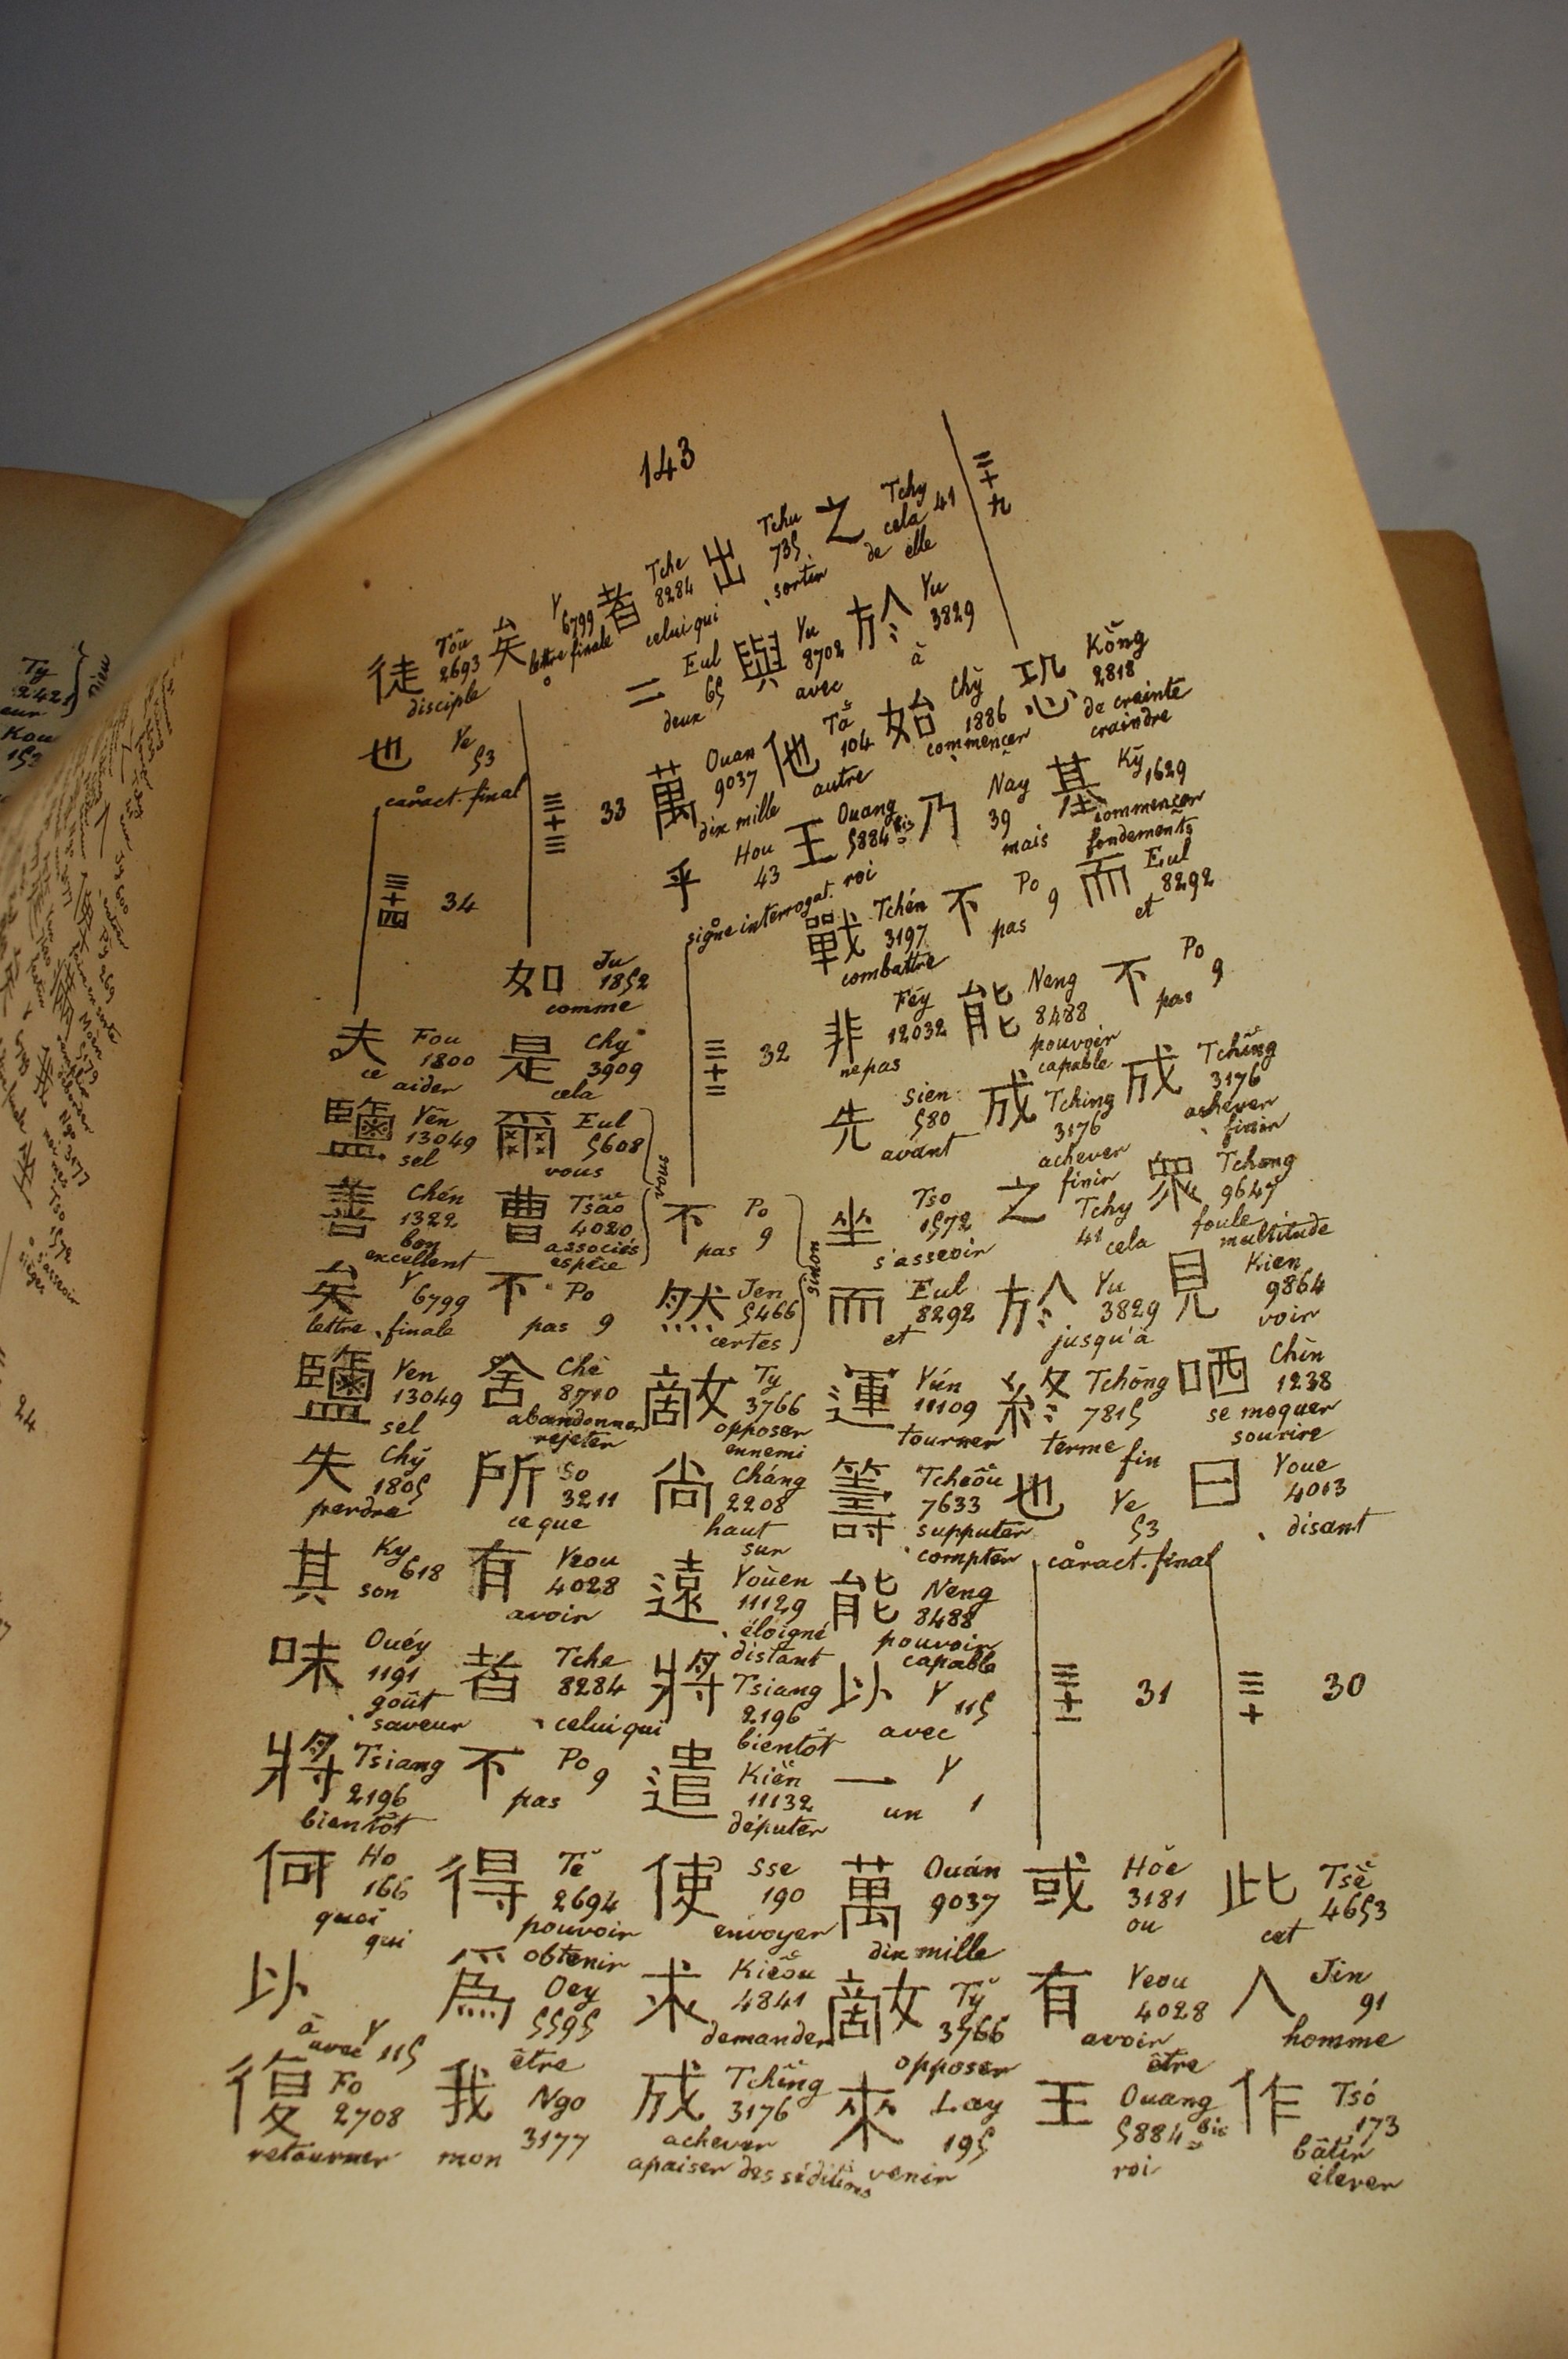 143
恐 Kǒng 2818 de crainte craindre
基 Ky 1629 commencer fondements
而 Eul 8292 et
不 Po 9 pas
成 Tchĭng 3176 achever finir
衆 Tchong 9647 foule multitude
見 Kien 9864 voir
哂 Chin 1238 se moquer sourire
曰 Youe 4013 disant
三十 30
此 Tsě 4653 cet
人 Jin 91 homme
作 Tsó 173 bâtir élever
之 Tchy 41 cela de elle
於 Yu 3829 à
始 Chỳ 1886 commencer
乃 Nay 39 mais
不 Po 9 pas
能 Neng 8488 pouvoir capable
成 Tching 3176 achever finir
之 Tchy 41 cela
於 Yu 3829 jusqu'à
終 Tchōng 7815 terme fin
也 Ye 53 caract. final
三十一 31
或 Hŏe 3181 ou
有 Yeou 4028 avoir être
王 Ouang 5884 bis roi
出 Tchu 735 sortir
與 Yu 8702 avec
他 Tă 104 autre
王 Ouang 5884 bis roi
戰 Tchén 3197 combattre
非 Féy 12032 ne pas
先 Sien 580 avant
坐 Tso 1572 s'asseoir
而 Eul 8292 et
運 Yún 11109 tourner
籌 Tcheŏu 7633 supputer compter
能 Neng 8488 pouvoir capable
以 Y 115 avec
一 Y 1 un
萬 Ouán 9037 dix mille
敵 Tỳ 3766 opposer
來 Lay 195 venir
者 Tche 8284 celui qui
二 Eul 65 deux
萬 Ouan 9037 dix mille
乎 Hou 43 signe interrogat.
三十二 32
不 Po 9 pas
然 Jen 5466 certes
sinon
敵 Ty 3766 opposer ennemi
尚 Cháng 2208 haut sur
遠 Yoùen 11129 éloigné distant
將 Tsiang 2196 bientôt
遣 Kiĕn 11132 députer
使 Sse 190 envoyer
求 Kieŏu 4841 demander
成 Tchĭng 3176 achever apaiser des séditions
矣 Y 6799 lettre finale
三十三 33
如 Ju 1852 comme
是 Chy 3909 cela
爾 Eul 5608 vous
曹 Tsăo 4020 associés espèce
vous
不 Po 9 pas
舍 Chĕ 8710 abandonner rejeter
所 So 3211 ce que
有 Yeou 4028 avoir
者 Tche 8284 celui qui
不 Po 9 pas
得 Tĕ 2694 pouvoir obtenir
爲 Oey 5595 être
我 Ngo 3177 mon
徒 Tôu 2693 disciple
也 Ye 53 caract. final
三十四 34
夫 Fou 1800 ce aider
鹽 Yĕn 13049 sel
善 Chén 1322 bon excellent
矣 Y 6799 lettre finale
鹽 Yen 13049 sel
失 Chỳ 1805 perdre
其 Ky 618 son
味 Ouéy 1191 goût saveur
將 Tsiang 2196 bientôt
何 Ho 166 quoi qui
以 Y 115 à avec
復 Fo 2708 retourner